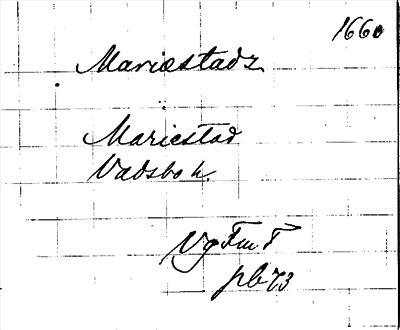 1660
Mariæstadz
Mariestad
Vadsbo h.
Vg Fm F
pb 73